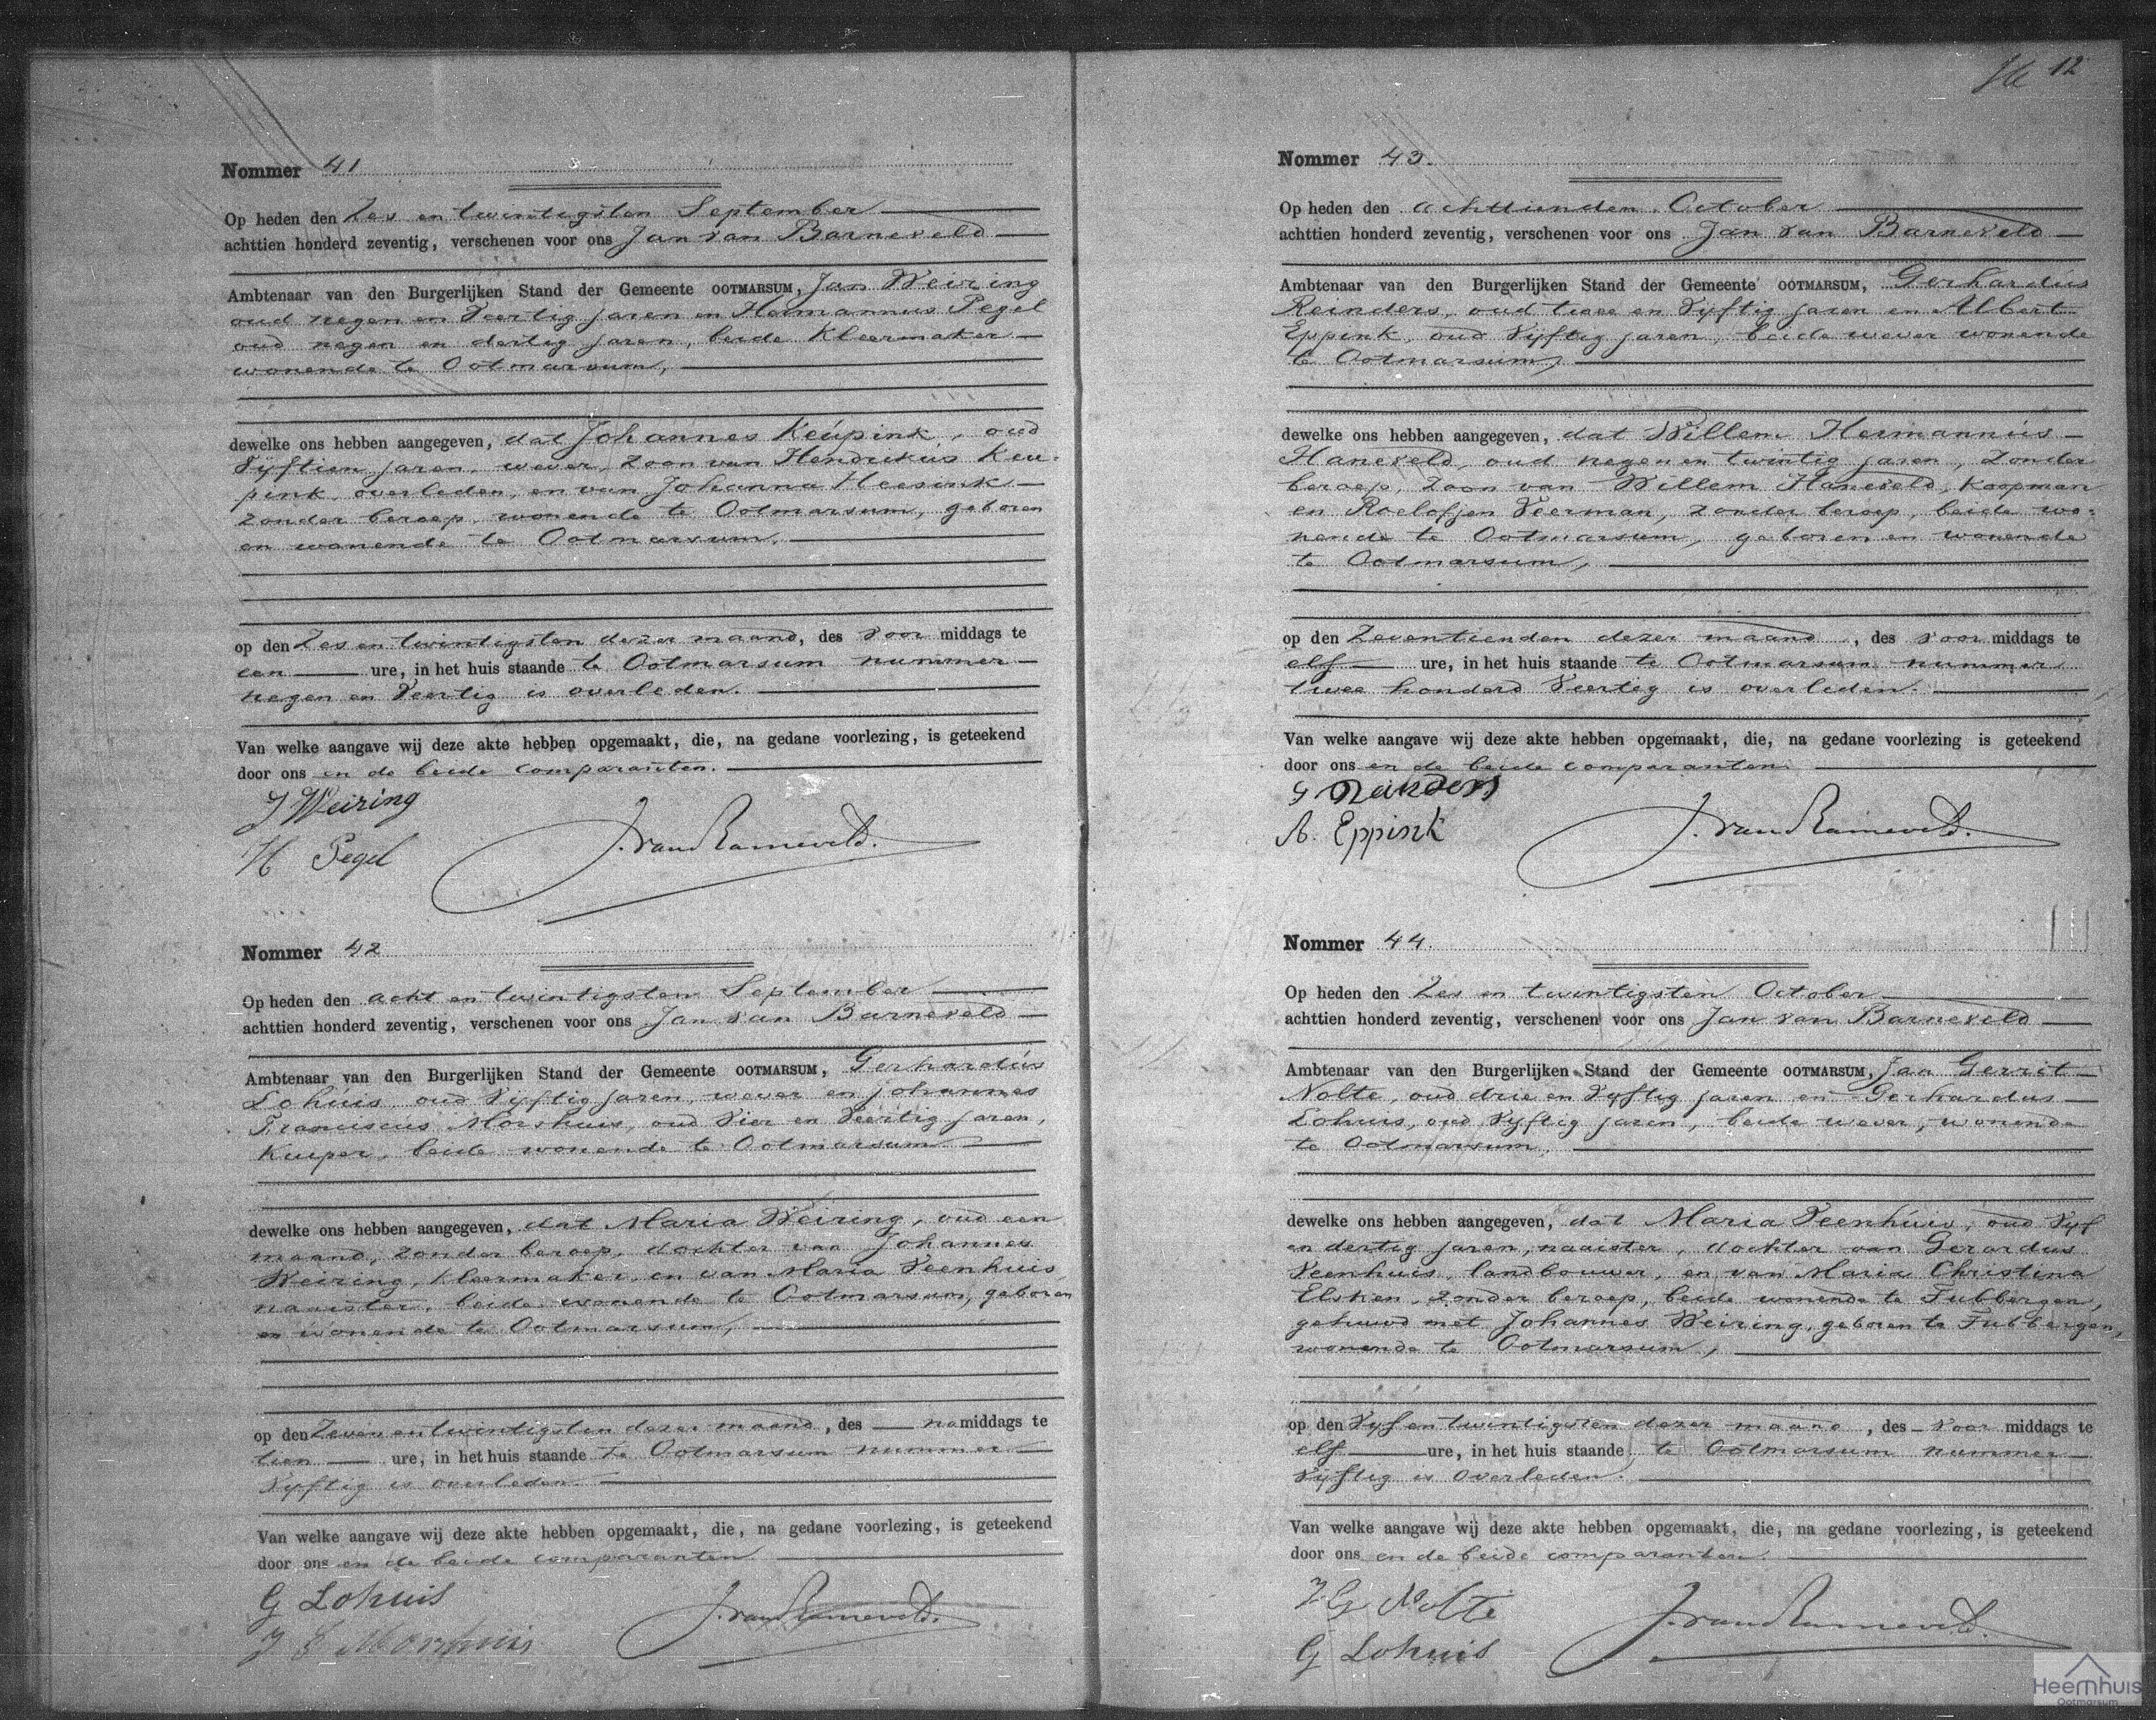 Nommer 41
Op heden den Zes en twintigsten September
achttien honderd zeventig, verschenen voor ons Jan van Barneveld
Ambtenaar van den Burgerlijken Stand der Gemeente OOTMARSUM, Jan Weiring
oud negen en Veertig jaren en Hermannus Pegel
oud negen en dertig jaren, beide Kleermaker
wonende te Ootmarsum,
dewelke ons hebben aangegeven, dat Johannes Keupink, oud
Vijftien jaren, wever, zoon van Hendrikus Keu-
pink, overleden, en van Johanna Heesink
zonder beroep, wonende te Ootmarsum, geboren
en wonende te Ootmarsum,
op den Zes en twintigsten dezer maand, des voor middags te
een ure, in het huis staande te Ootmarsum nummer
negen en Veertig is overleden.
Van welke aangave wij deze akte hebben opgemaakt, die, na gedane voorlezing, is geteekend
door ons en de beide comparanten.
J Weiring
H Pegel
J. van Barneveld.
Nommer 42
Op heden den acht en twintigsten September
achttien honderd zeventig, verschenen voor ons Jan van Barneveld
Ambtenaar van den Burgerlijken Stand der Gemeente OOTMARSUM, Gerhardus
Lohuis, oud Vijftig jaren, wever en Johannes
Franciscus Morshuis, oud Vier en Veertig jaren,
Kuiper, beide wonende te Ootmarsum
dewelke ons hebben aangegeven, dat Maria Weiring, oud een
maand, zonder beroep, dochter van Johannes
Weiring, Kleermaker, en van Maria Veenhuis,
naaister, beide wonende te Ootmarsum, geboren
en wonende te Ootmarsum,
op den Zeven en twintigsten dezer maand, des na middags te
tien ure, in het huis staande te Ootmarsum nummer
Vijftig is overleden.
Van welke aangave wij deze akte hebben opgemaakt, die, na gedane voorlezing, is geteekend
door ons en de beide comparanten
G Lohuis
J F Morshuis
J. van Barneveld.
12
Nommer 43.
Op heden den achttienden October
achttien honderd zeventig, verschenen voor ons Jan van Barneveld
Ambtenaar van den Burgerlijken Stand der Gemeente OOTMARSUM, Gerhardus
Reinders, oud twee en Vijftig jaren en Albert
Eppink, oud Vijftig jaren, beide wever wonende
te Ootmarsum,
dewelke ons hebben aangegeven, dat Willem Hermannus
Haneveld, oud negen en twintig jaren, zonder
beroep, zoon van Willem Haneveld, Koopman
en Roelofjen Veerman, zonder beroep, beide wo-
nende te Ootmarsum, geboren en wonende
te Ootmarsum,
op den Zeventienden dezer maand, des voor middags te
elf ure, in het huis staande te Ootmarsum nummer
twee honderd Veertig is overleden.
Van welke aangave wij deze akte hebben opgemaakt, die, na gedane voorlezing is geteekend
door ons en de beide comparanten.
G Reinders
A. Eppink
J. van Barneveld.
Nommer 44.
Op heden den Zes en twintigsten October
achttien honderd zeventig, verschenen voor ons Jan van Barneveld
Ambtenaar van den Burgerlijken Stand der Gemeente OOTMARSUM, Jan Gerrit
Nolte, oud drie en Vijftig jaren en Gerhardus
Lohuis, oud Vijftig jaren, beide wever, wonende
te Ootmarsum,
dewelke ons hebben aangegeven, dat Maria Veenhuis, oud Vijf
en dertig jaren, naaister, dochter van Gerardus
Veenhuis, landbouwer, en van Maria Christina
Elsken, zonder beroep, beide wonende te Tubbergen,
gehuwd met Johannes Weiring, geboren te Tubbergen,
wonende te Ootmarsum,
op den Vijf en twintigsten dezer maand, des voor middags te
elf ure, in het huis staande te Ootmarsum nummer
Vijftig is overleden.
Van welke aangave wij deze akte hebben opgemaakt, die, na gedane voorlezing, is geteekend
door ons en de beide comparanten.
J G Nolte
G Lohuis
J. van Barneveld.
Heemhuis
Ootmarsum